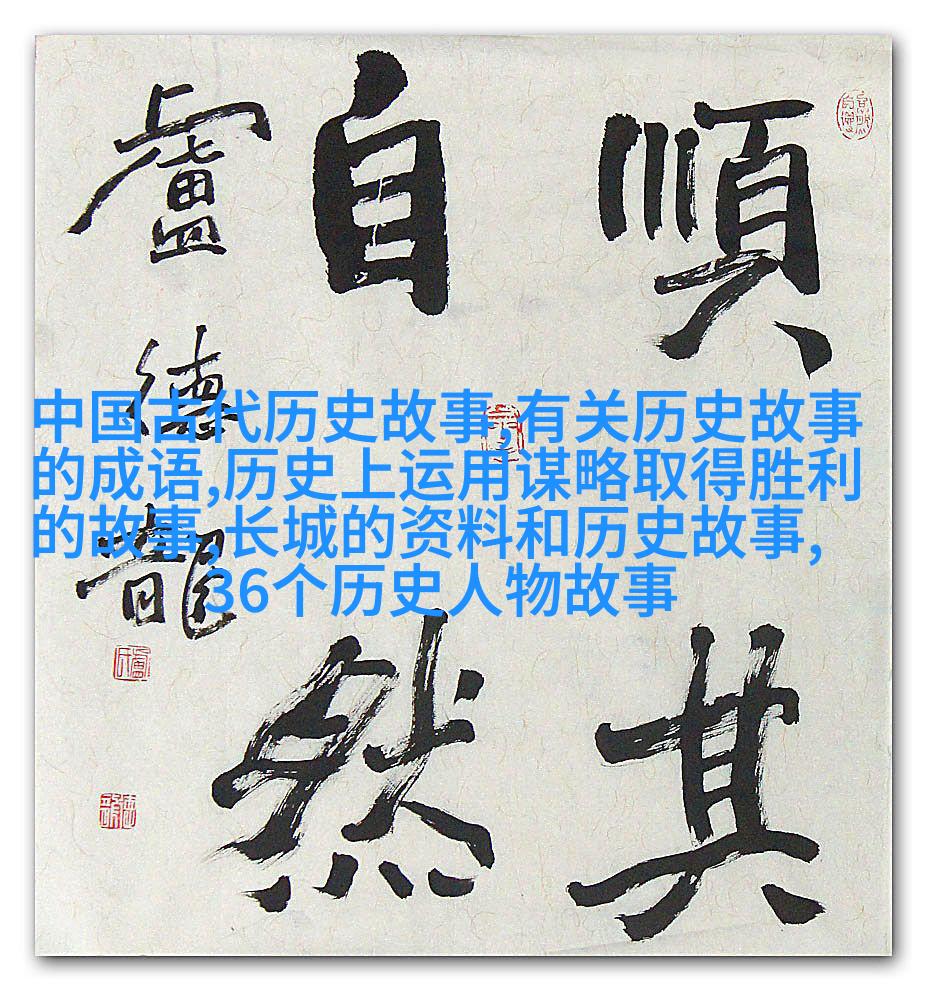 順其
自然
盧德龍
中国古代历史故事,有关历史故事
的成语,历史上运用谋略取得胜利
的故事,长城的资料和历史故事,
36个历史人物故事